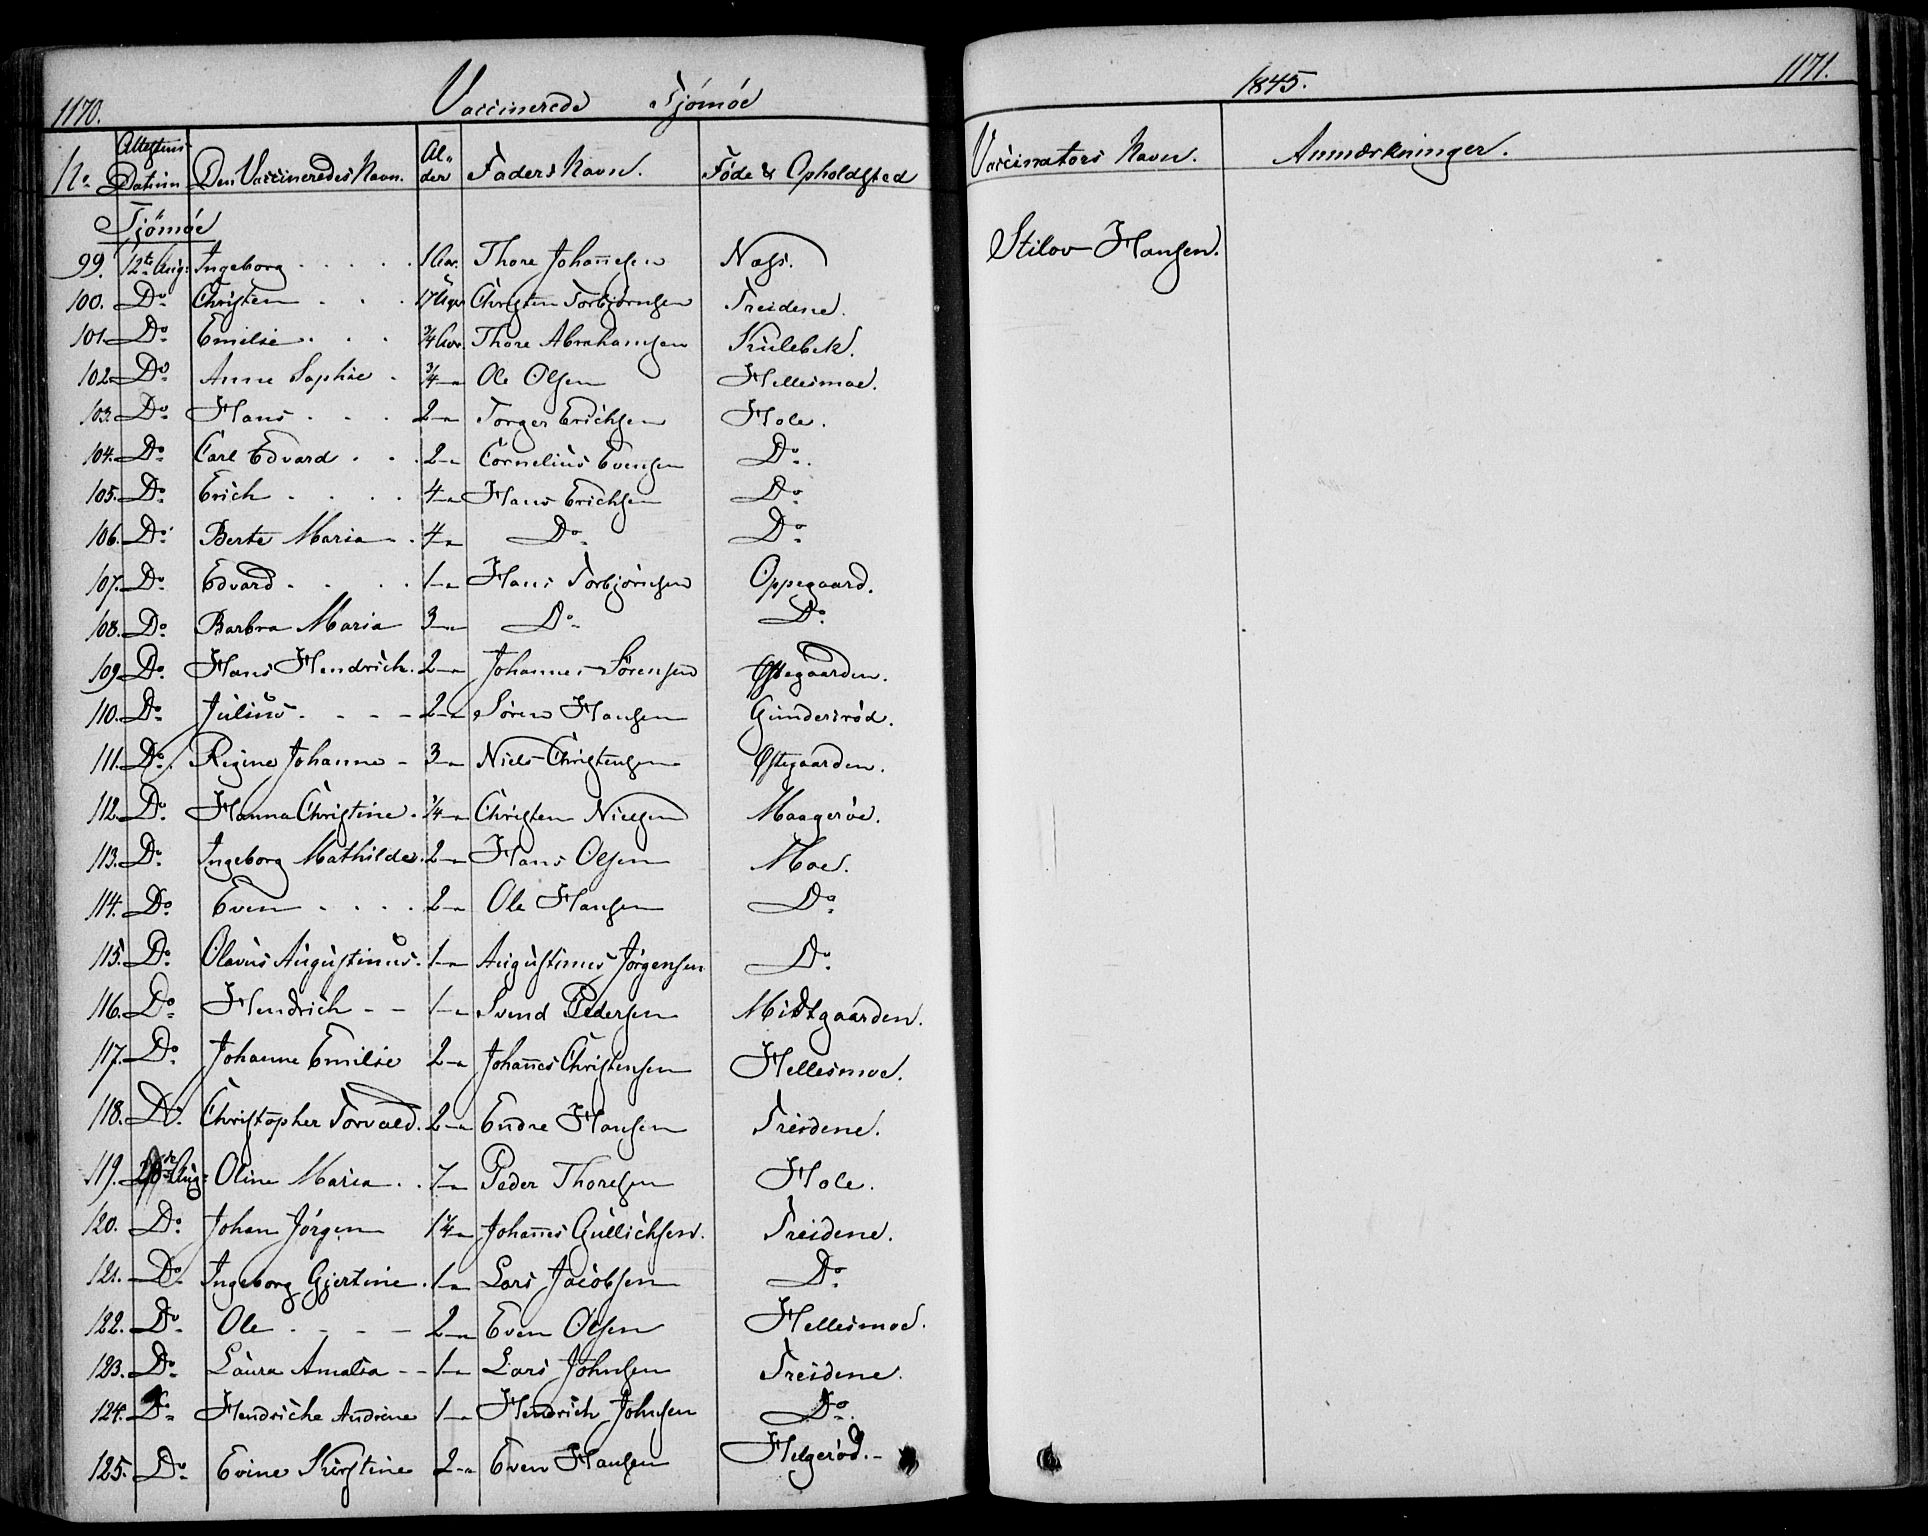 1170. Vaccinerede Tjömöe
No Attestens Datum Den Vaccineredes Navn. Al„der Faders Navn. Föde & Opholdsted
Tjömöe
99. 12te Aug: Ingeborg . . . . . 1 Aar. Thore Johan̄esen Næss.
100. Do Christen . . . 17 Uger Christen Torbjörnsen Treidene.
101. Do Emilie . . . 3/4 Aar. Thore Abrahamsen Kulebek.
102. Do Anne Sophie . 3/4 - " Ole Olsen Hellesmoe.
103. Do Hans . . . 2 - " Torger Erichsen Hole.
104. Do Carl Edvard . . . 2 - " Cornelius Evensen Do.
105. Do Erich . . . . 4 - " Hans Erichsen Do
106. Do Berte Maria . 4 " Do Do
107. Do Edvard . . . . 1 - " Hans Torbjörnsen Oppegaard.
108. Do Barbra Maria 3 - " Do Do
109 Do Hans Hendrich. 2 - " Johannes Sörensen Østegaarden.
110. Do Julius . - - - 2 - " Sören Hansen Gundersröd.
111. Do. Regine Johanne - 3 - " Niels Christensen Østegaarden.
112. Do Hanna Christine. 1/4 - " Christen Nielsen Maagerøe.
113. Do Ingeborg Mathilde. 2 - " Hans Olsen Moe.
114. Do Even . . . . 2 - " Ole Hansen Do
115. Do Olavus Augustinus. 1 - " Augustinus Jörgensen Do
116. Do Hendrich - - 1 - " Svend Pedersen Midtgaarden.
117. Do Johanne Emilie 2 - " Johan̄es Christensen Hellesmoe.
118. Do. Christopher Torvald. 2 - " Endre Hansen Treidene.
119. Aug: Oline Maria . . 7 - " Peder Thoresen Hole.
120. Do Johan Jörgen 1 1/4 " Johan̄es Gullichsen. Treidene.
121. Do Ingeborg Gjertine. 1 - " Lars Jacobsen Do
122. Do Ole . - - - 2 - " Even Olsen Hellesmoe.
123. Do Laura Amalia - - 1 - " Lars Johnsen Treidene.
124. Do Hendriche Andrine 1 - " Hendrich Johnsen Do.
125. Do Evine Kirstine 2 - " Even Hansen Helgeröd. -
1845. 1171.
Vaccinators Navn. Anmærkninger.
Stilov Hansen.